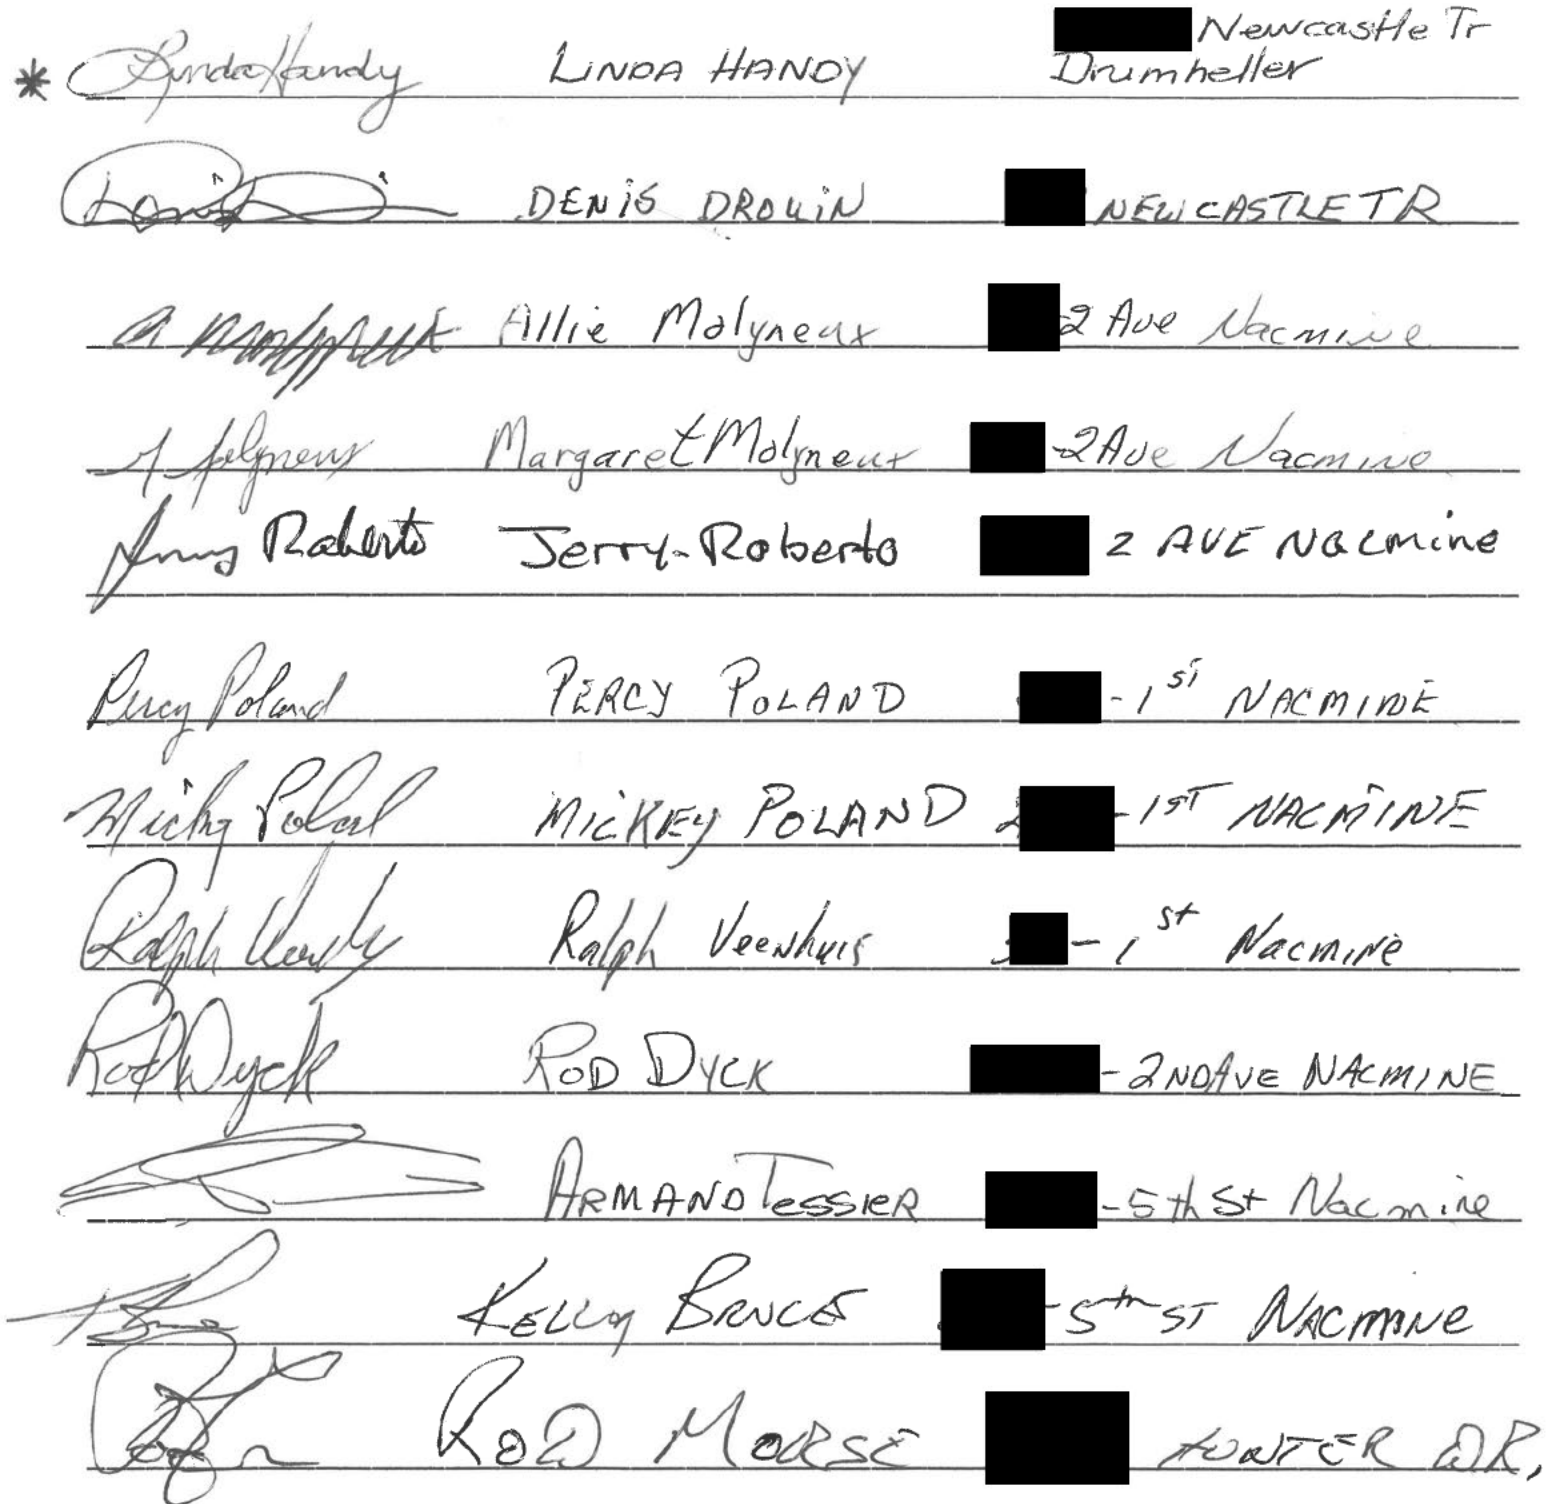 Newcastle Tr
* Linda Handy LINDA HANDY Drumheller
DENIS DROUIN NEWCASTLE TR
A Molyneux Allie Molyneux 2 Ave Nacmine
M Molyneux Margaret Molyneux -2 Ave Nacmine
Jerry Roberto Jerry-Roberto 2 AVE Nacmine
Percy Poland PERCY POLAND -1st NACMINE
Micky Poland MICKEY POLAND -1ST NACMINE
Ralph Ralph Veenhuis -1st Nacmine
Rod Dyck ROD DYCK -2ND AVE NACMINE
ARMAND TESSIER -5th St Nacmine
KELLY BRUCE -5th ST NACMINE
ROD MORSE HUNTER DR.